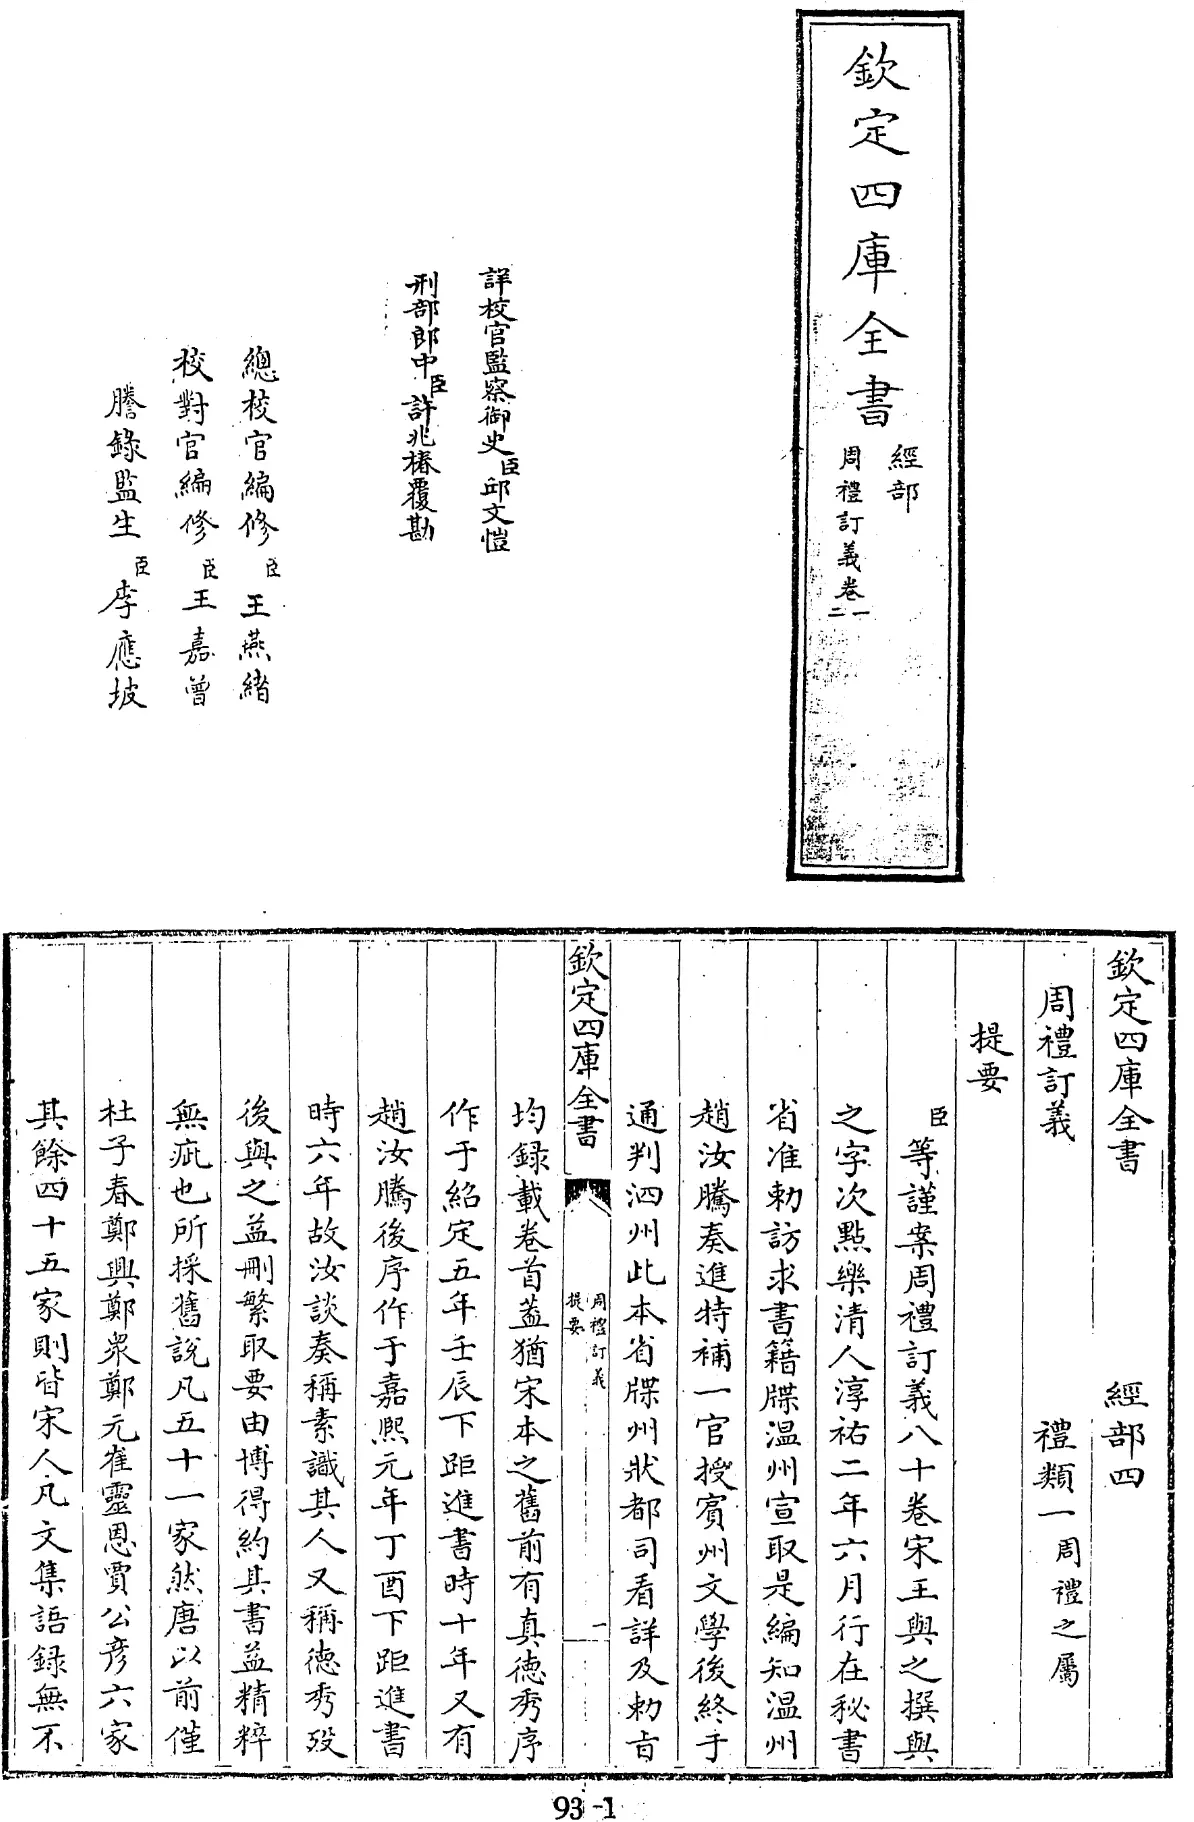 欽定四庫全書
經部
周禮訂義卷一
二
詳校官監察御史臣邱文愷
刑部郎中臣許兆椿覆勘
總校官編修臣王燕緒
校對官編修臣王嘉曾
謄錄監生臣李應坡
欽定四庫全書 經部四
周禮訂義 禮類一周禮之屬
提要
臣等謹案周禮訂義八十卷宋王與之撰與
之字次點樂清人淳祐二年六月行在秘書
省准勅訪求書籍牒温州宣取是編知温州
趙汝騰奏進特補一官授賓州文學後終于
通判泗州此本省牒州狀都司看詳及勅旨
欽定四庫全書
周禮訂義
提要
一
均録載卷首葢猶宋本之舊前有真德秀序
作于紹定五年壬辰下距進書時十年又有
趙汝騰後序作于嘉熙元年丁酉下距進書
時六年故汝談奏稱素識其人又稱德秀殁
後與之益刪繁取要由博得約其書益精粹
無疵也所採舊說凡五十一家然唐以前僅
杜子春鄭興鄭衆鄭元崔靈恩賈公彥六家
其餘四十五家則皆宋人凡文集語録無不
93-1